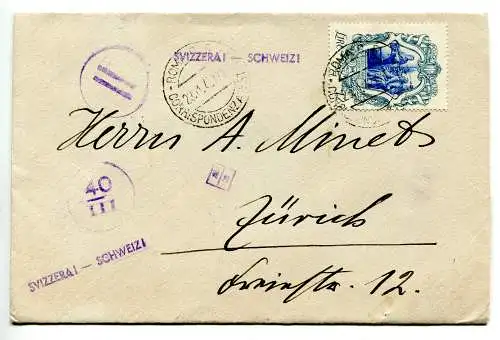 SVIZZERA! — SCHWEIZ!
ROMA
CORRISPONDENZE
Herrn A. Minets
40
III
Zürich
SVIZZERA! — SCHWEIZ!
Freiestr. 12.